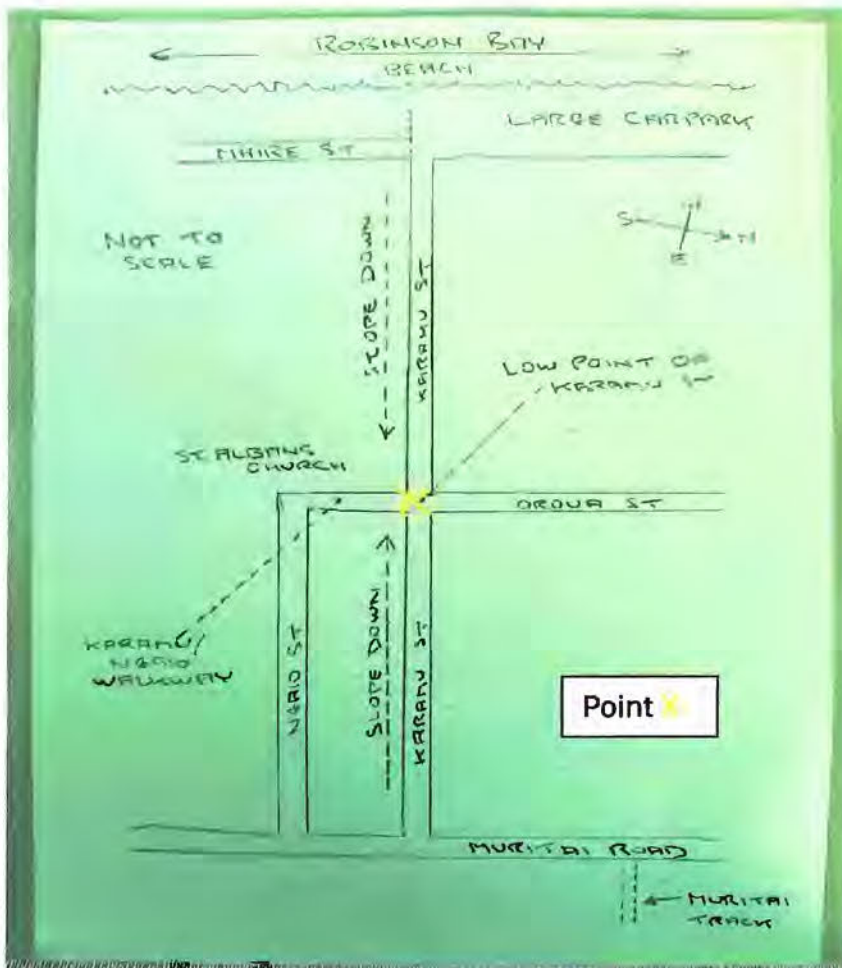 ROBINSON BAY
BEACH
LARGE CARPARK
MAIRE ST
NOT TO
SCALE
S
N
E
SLOPE DOWN
KARAMU ST
LOW POINT OF
KARAMU ST
ST ALBANS
CHURCH
OROUA ST
KARAMU/
NGAIO
WALKWAY
NGAIO ST
SLOPE DOWN
KARAMU ST
Point X
MURITAI ROAD
MURITAI
TRACK